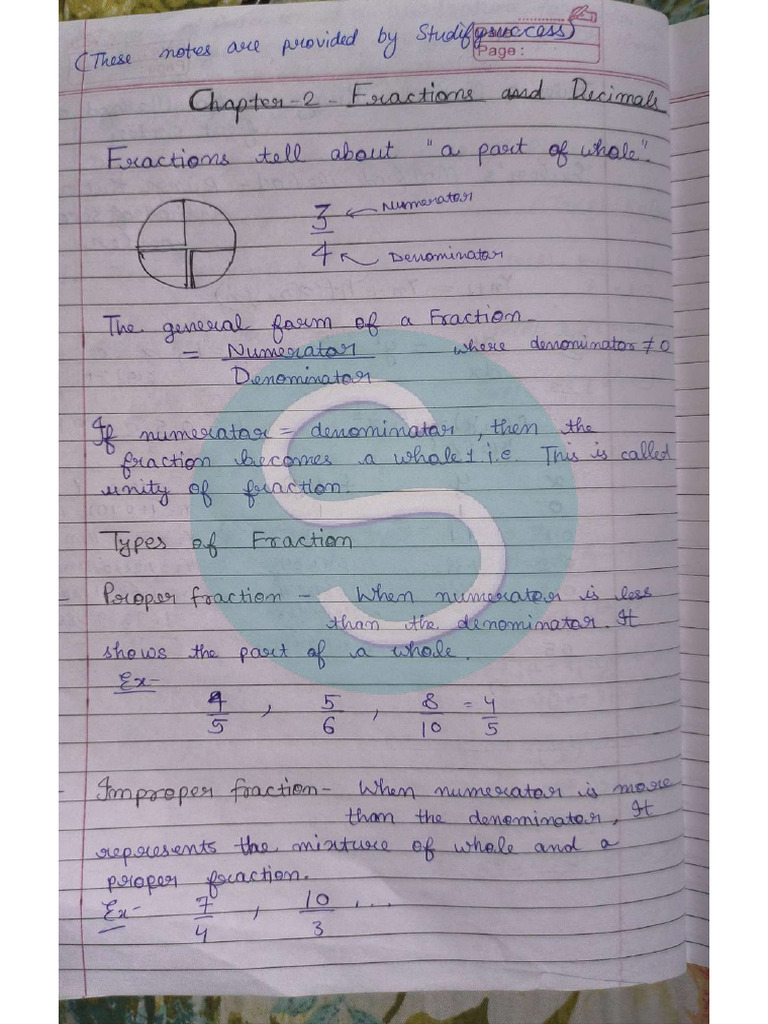 (These notes are provided by Studifysuccess)
Page:
Chapter-2 - Fractions and Decimals
Fractions tell about "a part of whole".
3 ← Numerator
4 ← Denominator
The general form of a Fraction-
= Numerator where denominator ≠ 0
Denominator
If numerator = denominator, then the
fraction becomes a whole 1 i.e. This is called
unity of fraction.
Types of Fraction
- Proper fraction - When numerator is less
than the denominator. It
shows the part of a whole.
Ex-
4/5, 5/6, 8/10 = 4/5
- Improper fraction - When numerator is more
than the denominator, It
represents the mixture of whole and a
proper fraction.
Ex- 7/4, 10/3 ...